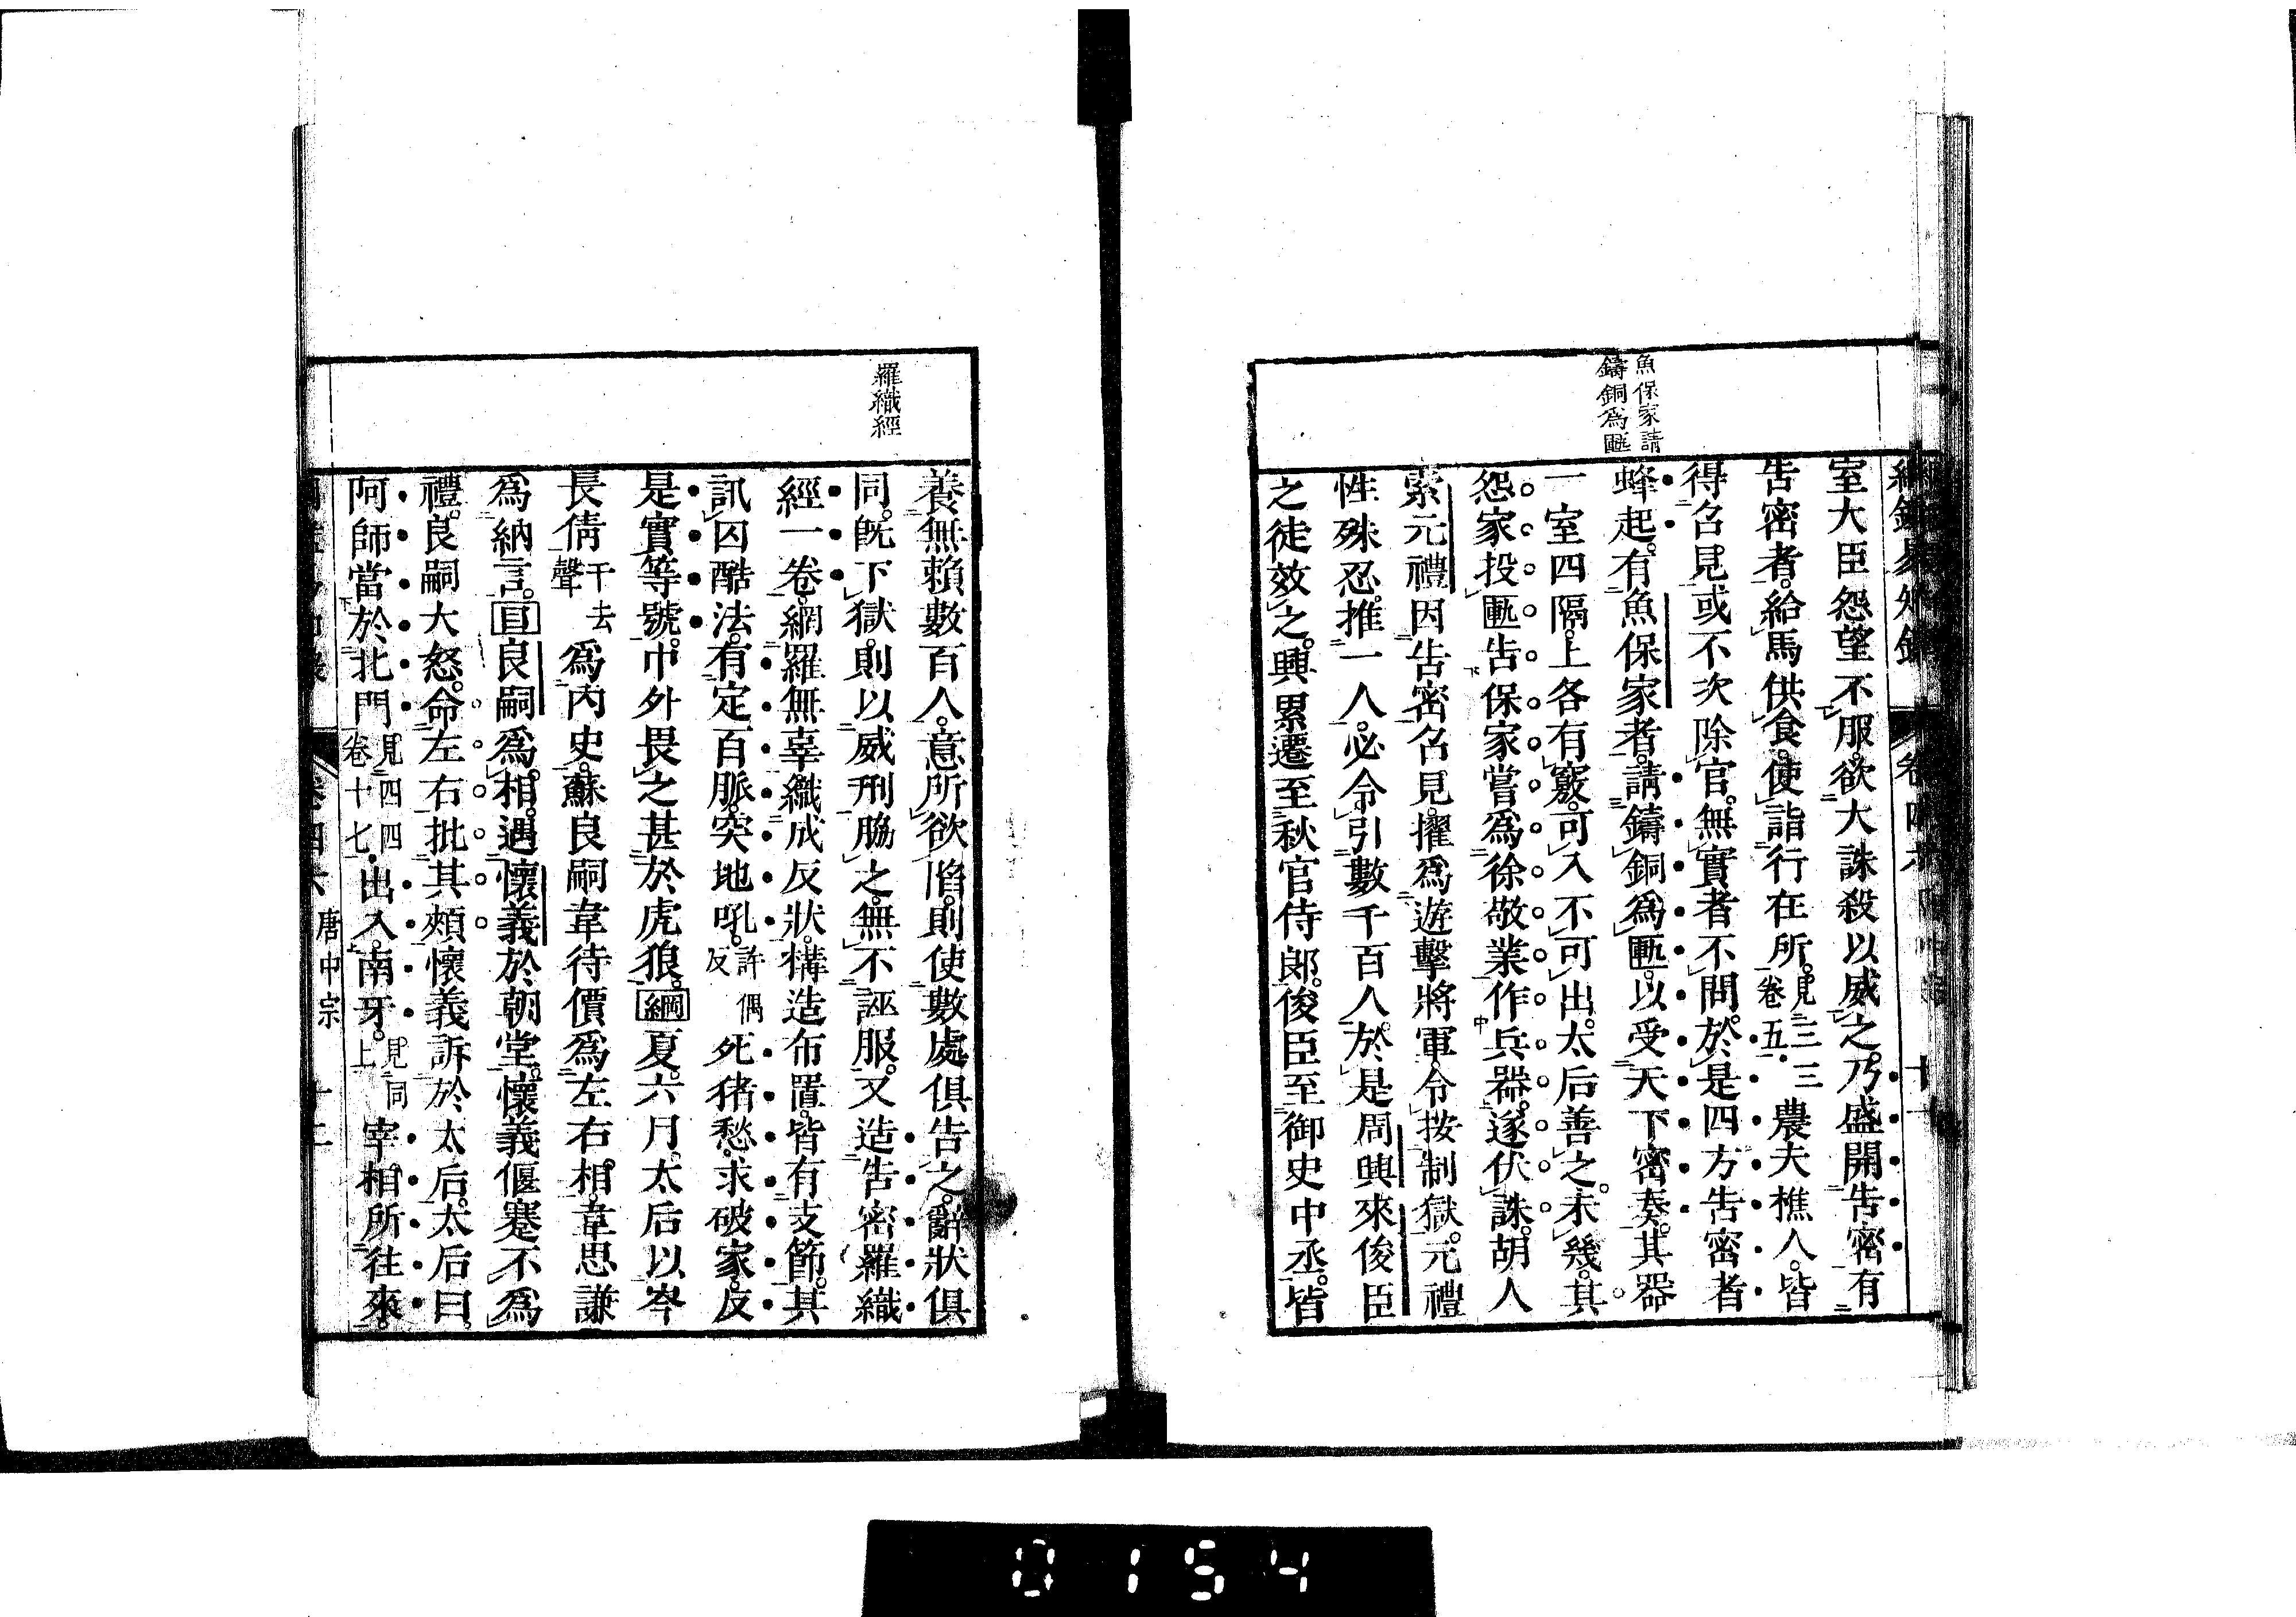 魚保家請
鑄銅爲匭
室大臣怨望不服欲大誅殺以威之乃盛開告密有
告密者給馬供食使詣行在所見三三卷五農夫樵人皆
得召見或不次除官無實者不問於是四方告密者
蜂起有魚保家者請鑄銅爲匭以受天下密奏其器
一室四隔上各有竅可入不可出太后善之未幾其
怨家投匭告保家嘗爲徐敬業作兵器遂伏誅胡人
索元禮因告密召見擢爲遊擊將軍令按制獄元禮
性殊忍推一人必令引數千百人於是周興來俊臣
之徒效之興累遷至秋官侍郎俊臣至御史中丞皆
羅織經
養無賴數百人意所欲陷則使數處俱告之辭狀俱
同旣下獄則以威刑脇之無不誣服又造告密羅織
經一卷網羅無辜織成反狀構造布置皆有支節其
訊囚酷法有定百脈突地吼許偶反死猪愁求破家反
是實等號中外畏之甚於虎狼綱夏六月太后以岑
長倩千去聲爲內史蘇良嗣韋待價爲左右相韋思謙
爲納言目良嗣爲相遇懷義於朝堂懷義偃蹇不爲
禮良嗣大怒命左右批其頰懷義訴於太后太后曰
阿師當於北門見四四卷十七出入南牙見同上宰相所往來
卷四六 唐中宗 十二